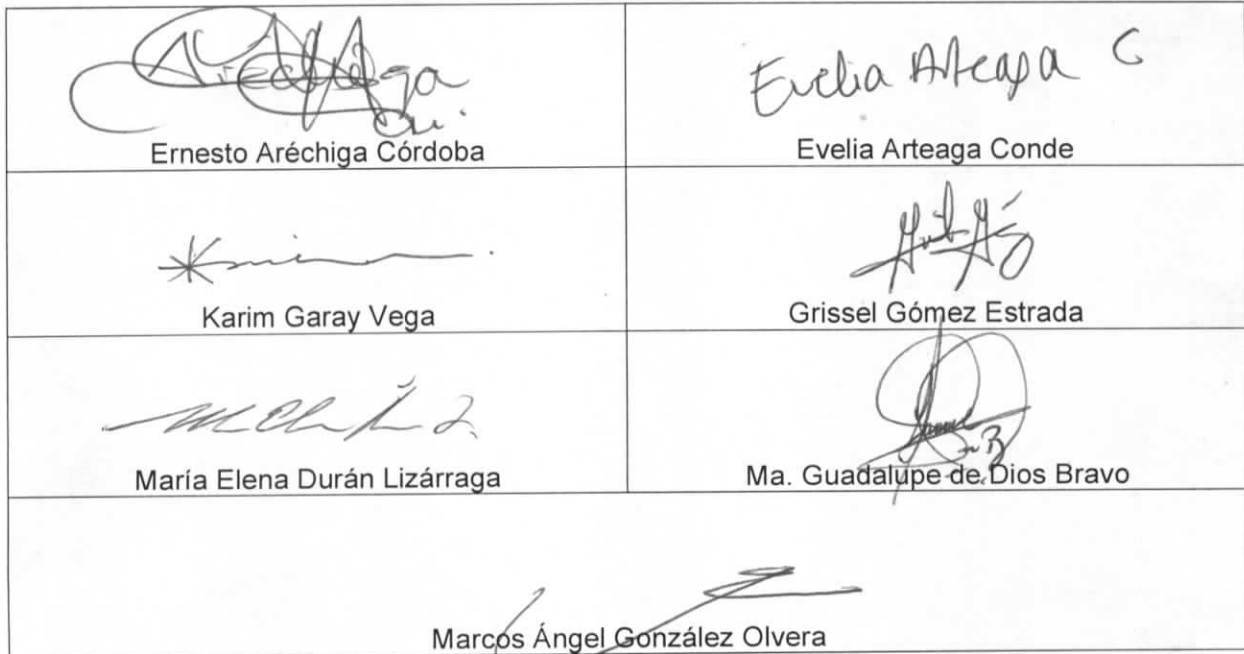 Aréchiga
Evelia Arteaga C
Ernesto Aréchiga Córdoba
Evelia Arteaga Conde
Karim Garay Vega
Grissel Gómez Estrada
María Elena Durán Lizárraga
Ma. Guadalupe de Dios Bravo
Marcos Ángel González Olvera